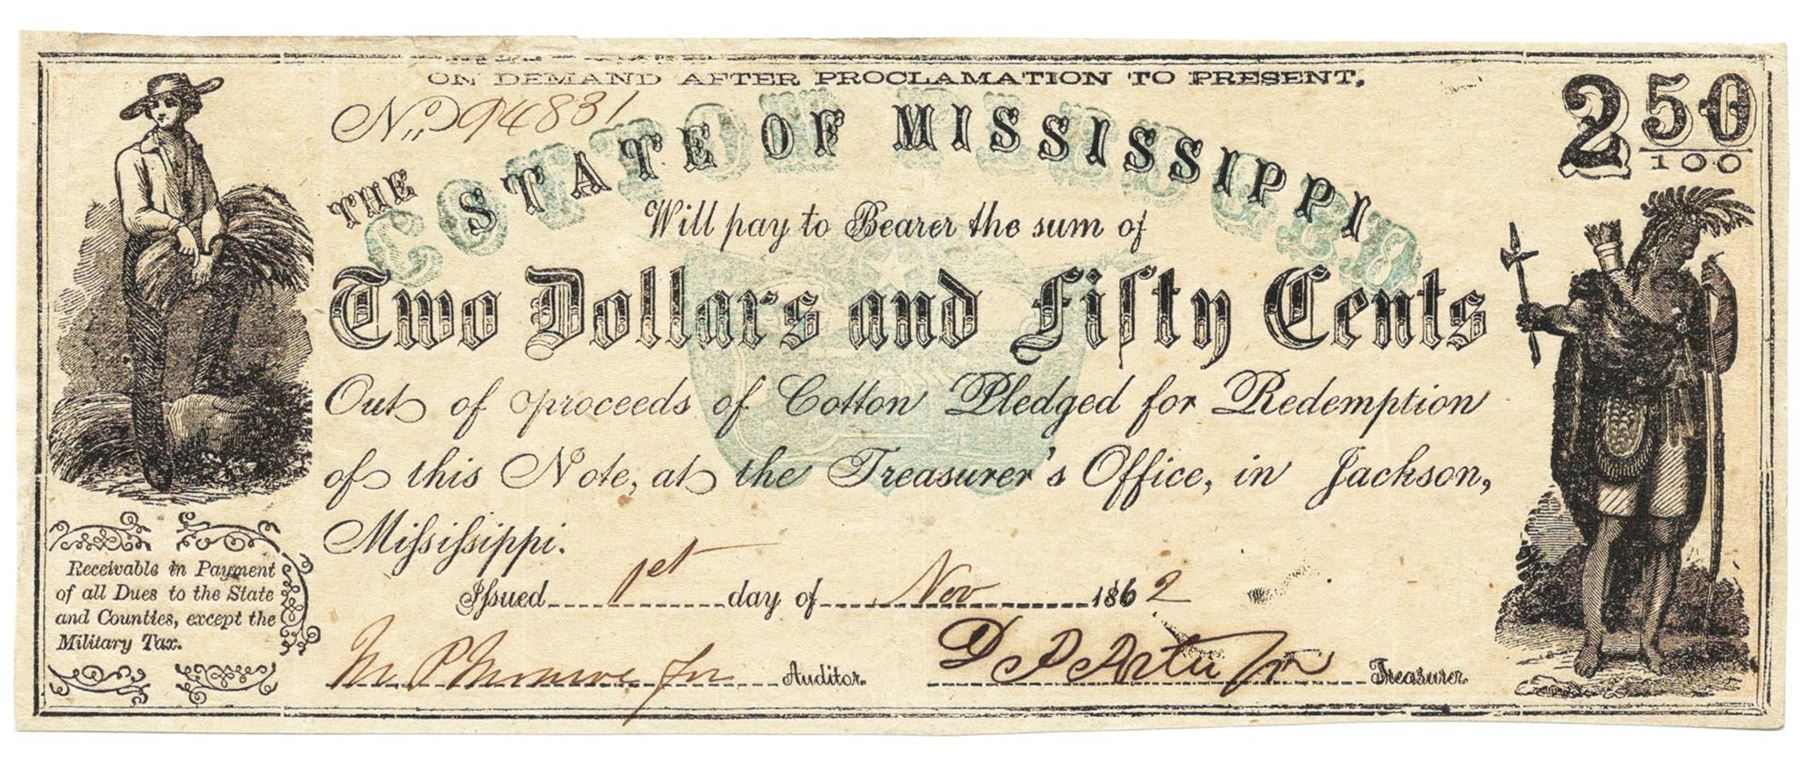 ON DEMAND AFTER PROCLAMATION TO PRESENT,
No 94831
2 50/100
THE STATE OF MISSISSIPPI
COTTON PLEDGED
Will pay to Bearer the sum of
Two Dollars and Fifty Cents
Out of proceeds of Cotton Pledged for Redemption
of this Note, at the Treasurer's Office, in Jackson,
Mississippi.
Issued 1st day of Nov 1862
Receivable in Payment
of all Dues to the State
and Counties, except the
Military Tax.
Auditor.
Treasurer.